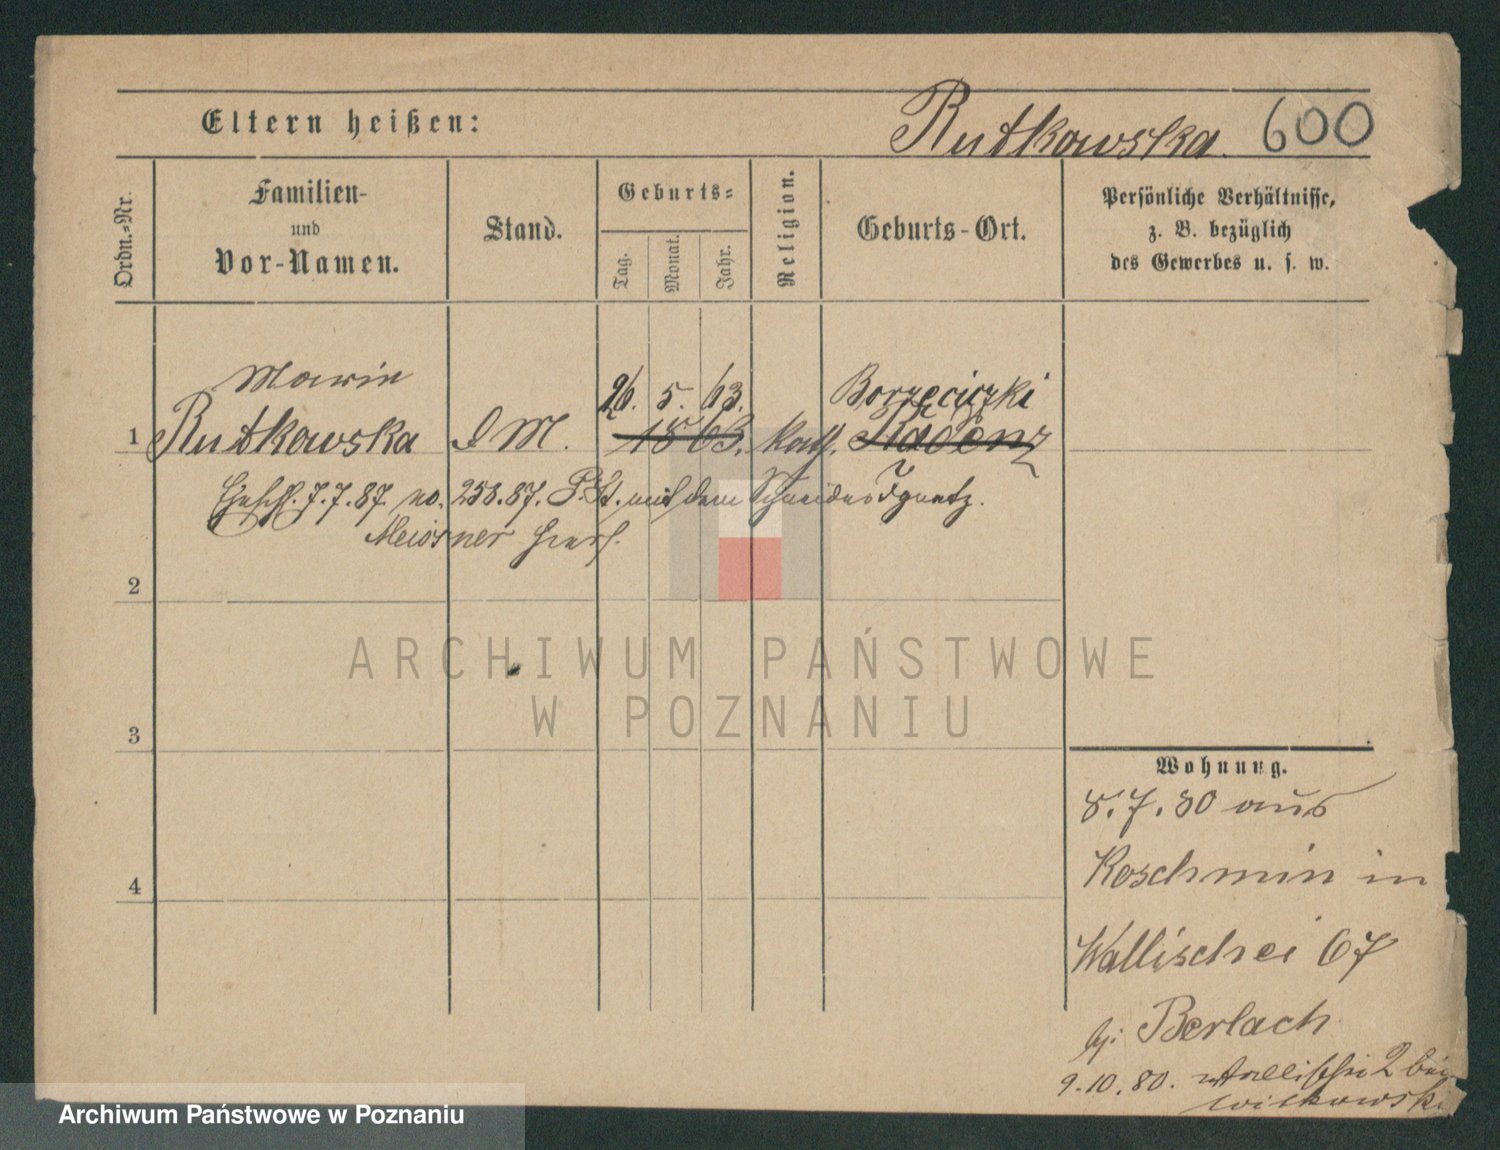 Eltern heißen:
Rutkowska. 600
Ordn.-Nr.
Familien-
und
Vor-Namen.
Stand.
Geburts-
Tag.
Monat.
Jahr.
Religion.
Geburts-Ort.
Persönliche Verhältnisse,
z. B. bezüglich
des Gewerbes u. s. w.
Marie 26. 5. 63. Borzeciczki
1 Rutkowska D M. 1863. kath.
7.7.87. no. 258.87. P. St. mit dem Schneider Ignatz
Meisner
2
ARCHIWUM PAŃSTWOWE
W POZNANIU
3
4
Wohnung.
8.7.80 aus
Koschmin in
Wallischei 67
bei Berlach
9.10.80. Wallischei 2 bei
Witkowski
Archiwum Państwowe w Poznaniu